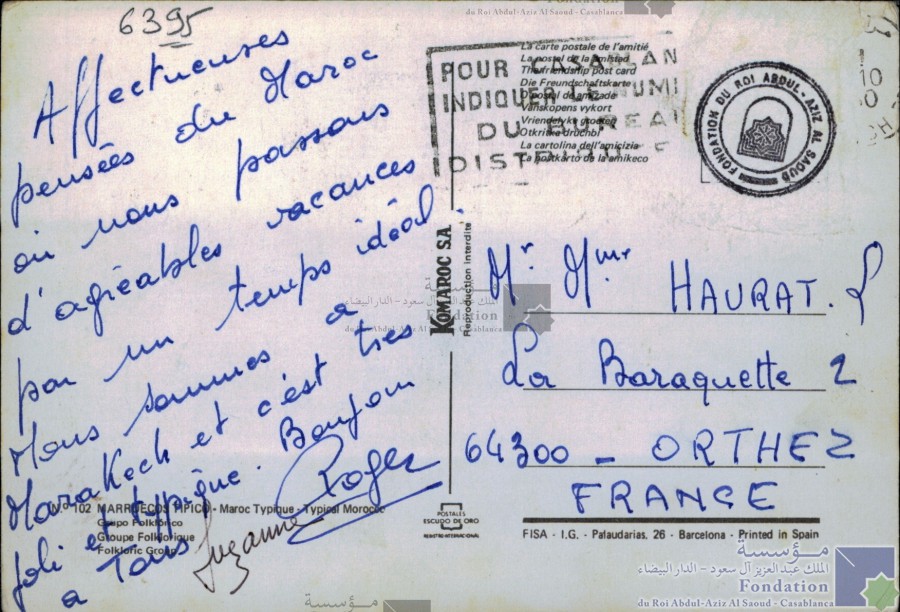 6395
Affectueuses
pensées du Maroc
où nous passons
d'agréables vacances
par un temps idéal.
Nous sommes a
Marakech et c'est tres
joli et typique. Bonjour
a Tous
Suzanne Roger
POUR CASA
INDIQUER LE NUM
DU BUREA
DIST
La carte postale de l'amitié
La postal de la amistad
The friendship post card
Die Freundschaftskarte
O postal de amizade
Vänskopens vykort
Vriendelyke groeten
Otkritnie druchbi
La cartolina dell'amicizia
La poŝtkarto de la amikeco
FONDATION DU ROI ABDUL-AZIZ AL SAOUD
KOMAROC S.A.
Reproduction interdite
Mr. Mme HAURAT. L
La Baraquette 2
64300 - ORTHEZ
FRANCE
N.º 102 MARRUECOS TIPICO - Maroc Typique - Typical Morocco
Grupo Folklórico
Groupe Folklorique
Folkloric Group
POSTALES
ESCUDO DE ORO
REGISTRO INTERNACIONAL
FISA - I.G. - Palaudarias, 26 - Barcelona - Printed in Spain
مؤسسة
الملك عبد العزيز آل سعود - الدار البيضاء
Fondation
du Roi Abdul-Aziz Al Saoud - Casablanca